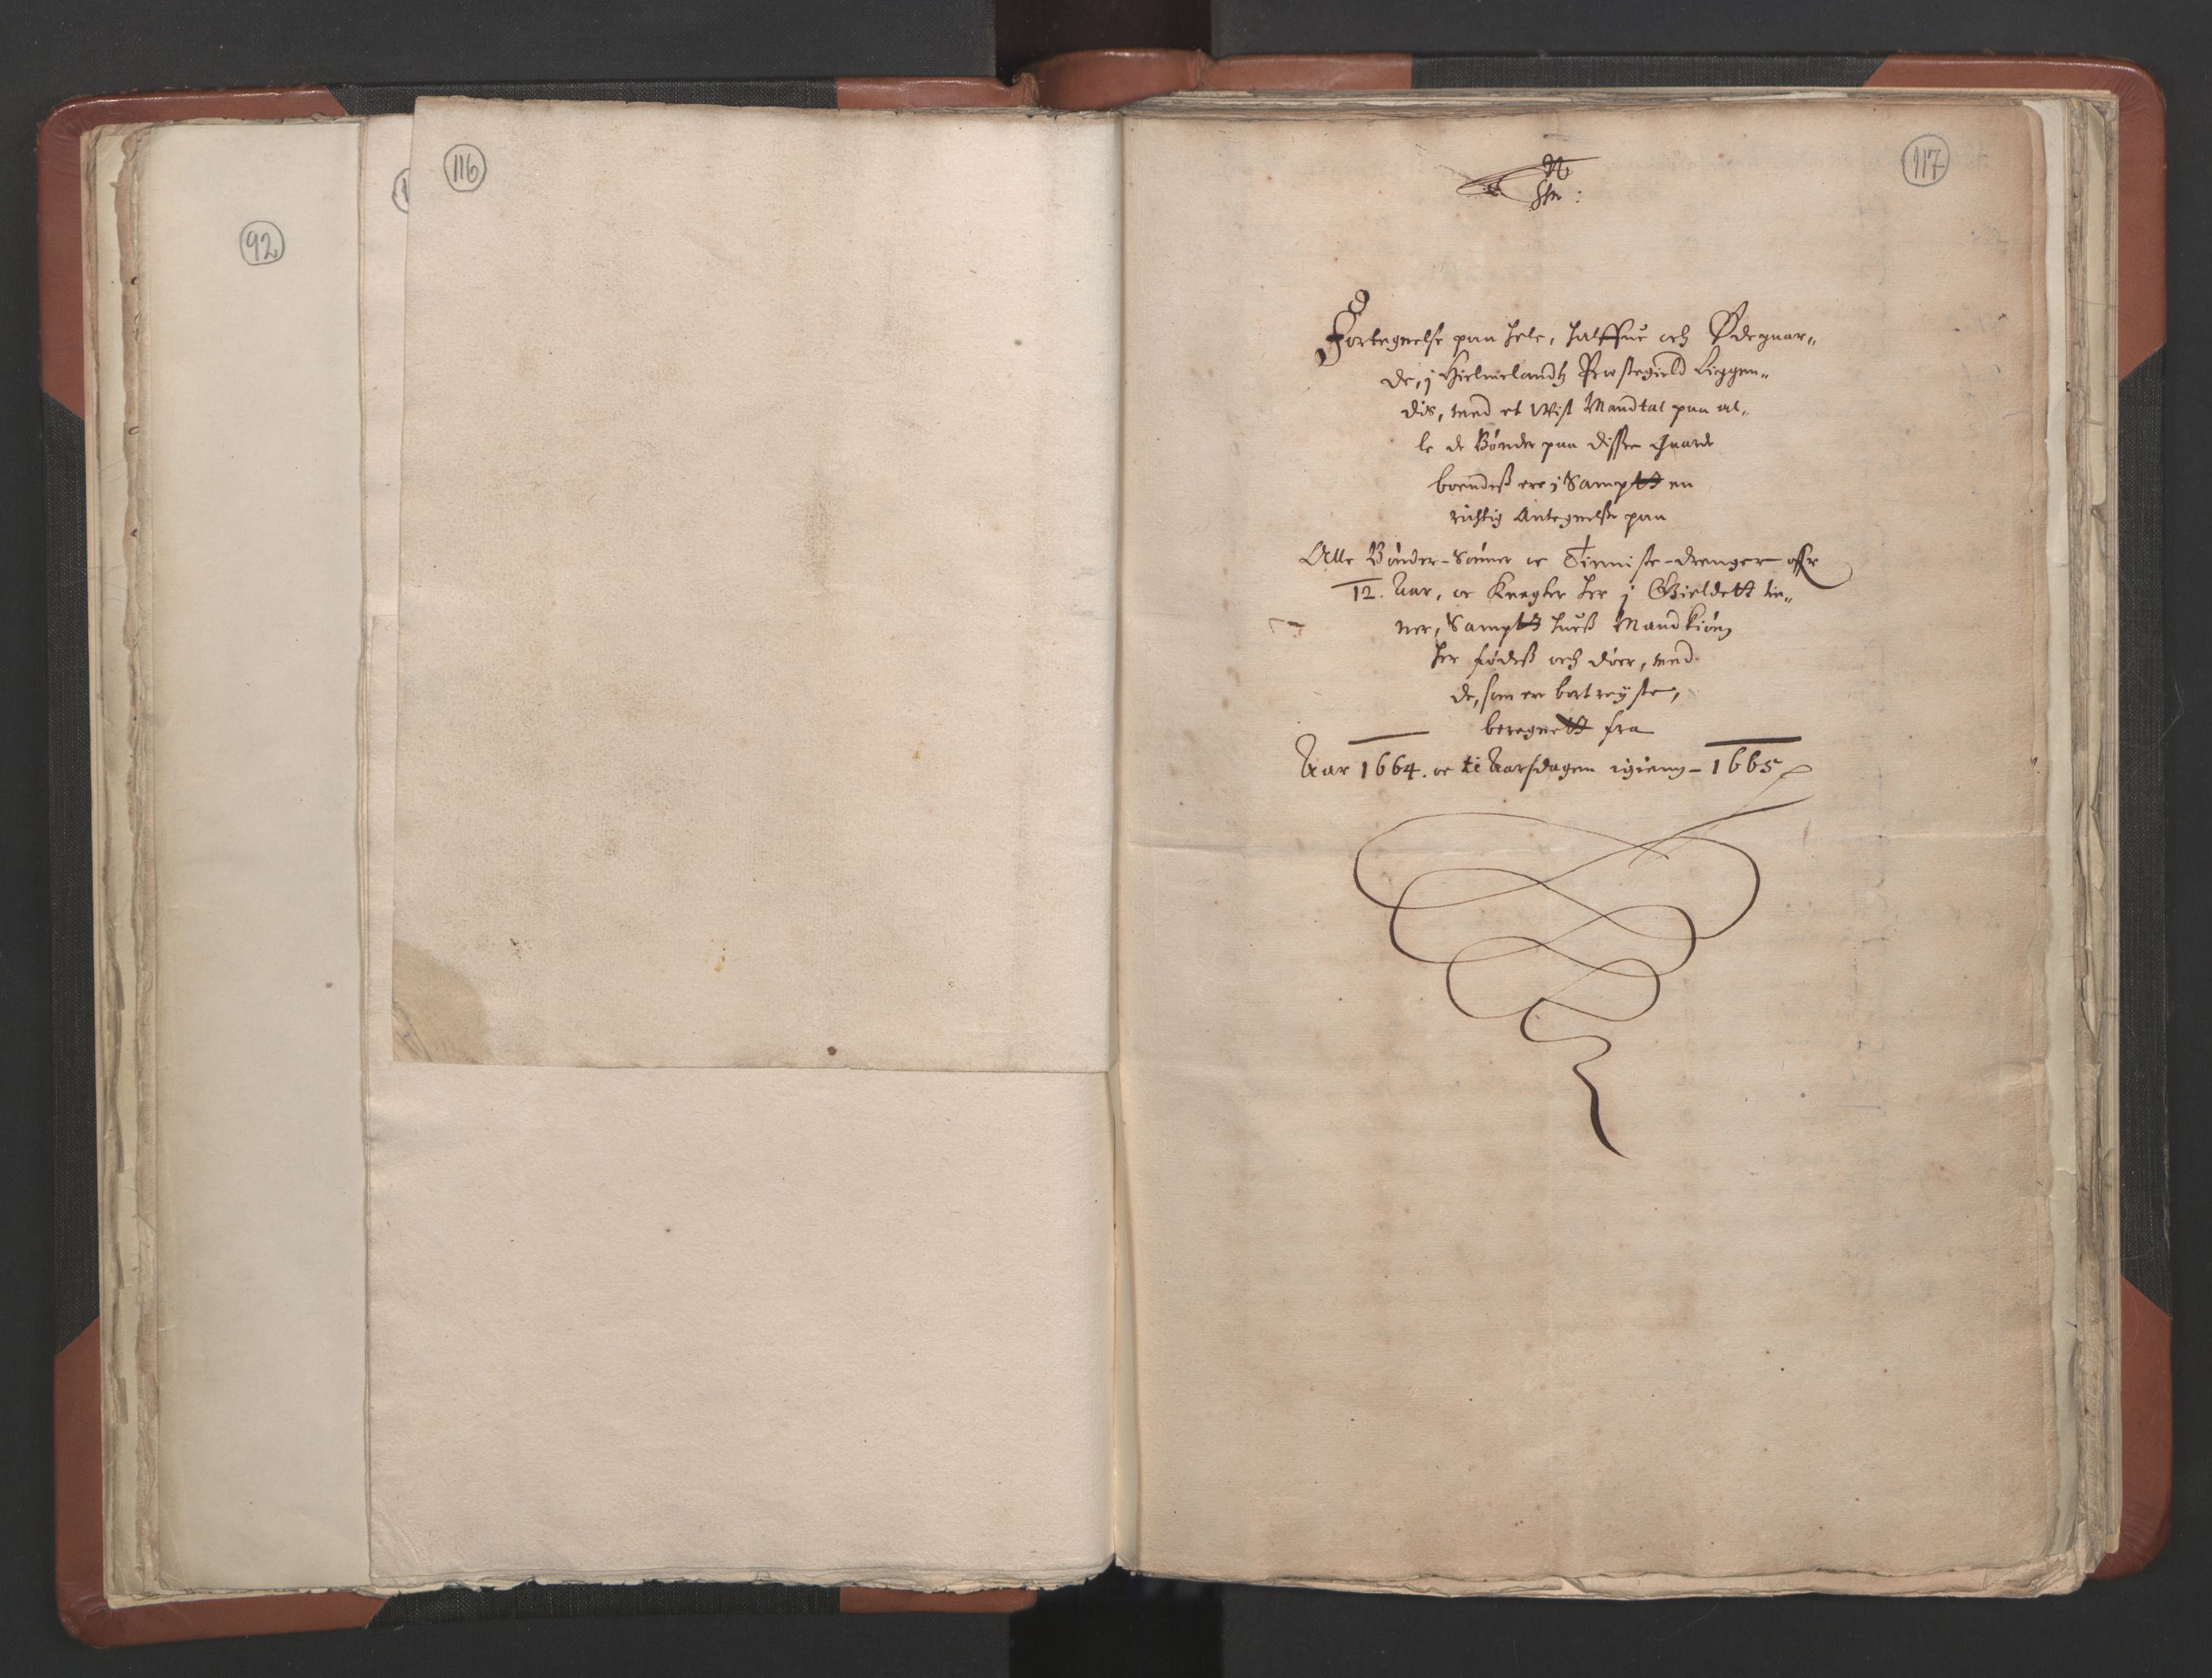 92
116
117
Fortegnelse paa hele, halffue och Ødegaar„
de, j Hielmelandtz Præstegield Liggen„
dis, med et Wist Mandtal paa al„
le de Bønder paa disse Gaarde
boendeß ere j Samptt en
richtig Antegnelse paa
Alle Bønder-Sønner oc Tienniste-drenger offr
12. Aar, oc Knegter her j Gieldett tie„
ner, Samptt hueß Mandkiøn
her fødeß och døer, med
de, som ere bort reyste,
beregnett fra
Aar 1664. oc til Aarsdagen igienn - 1665